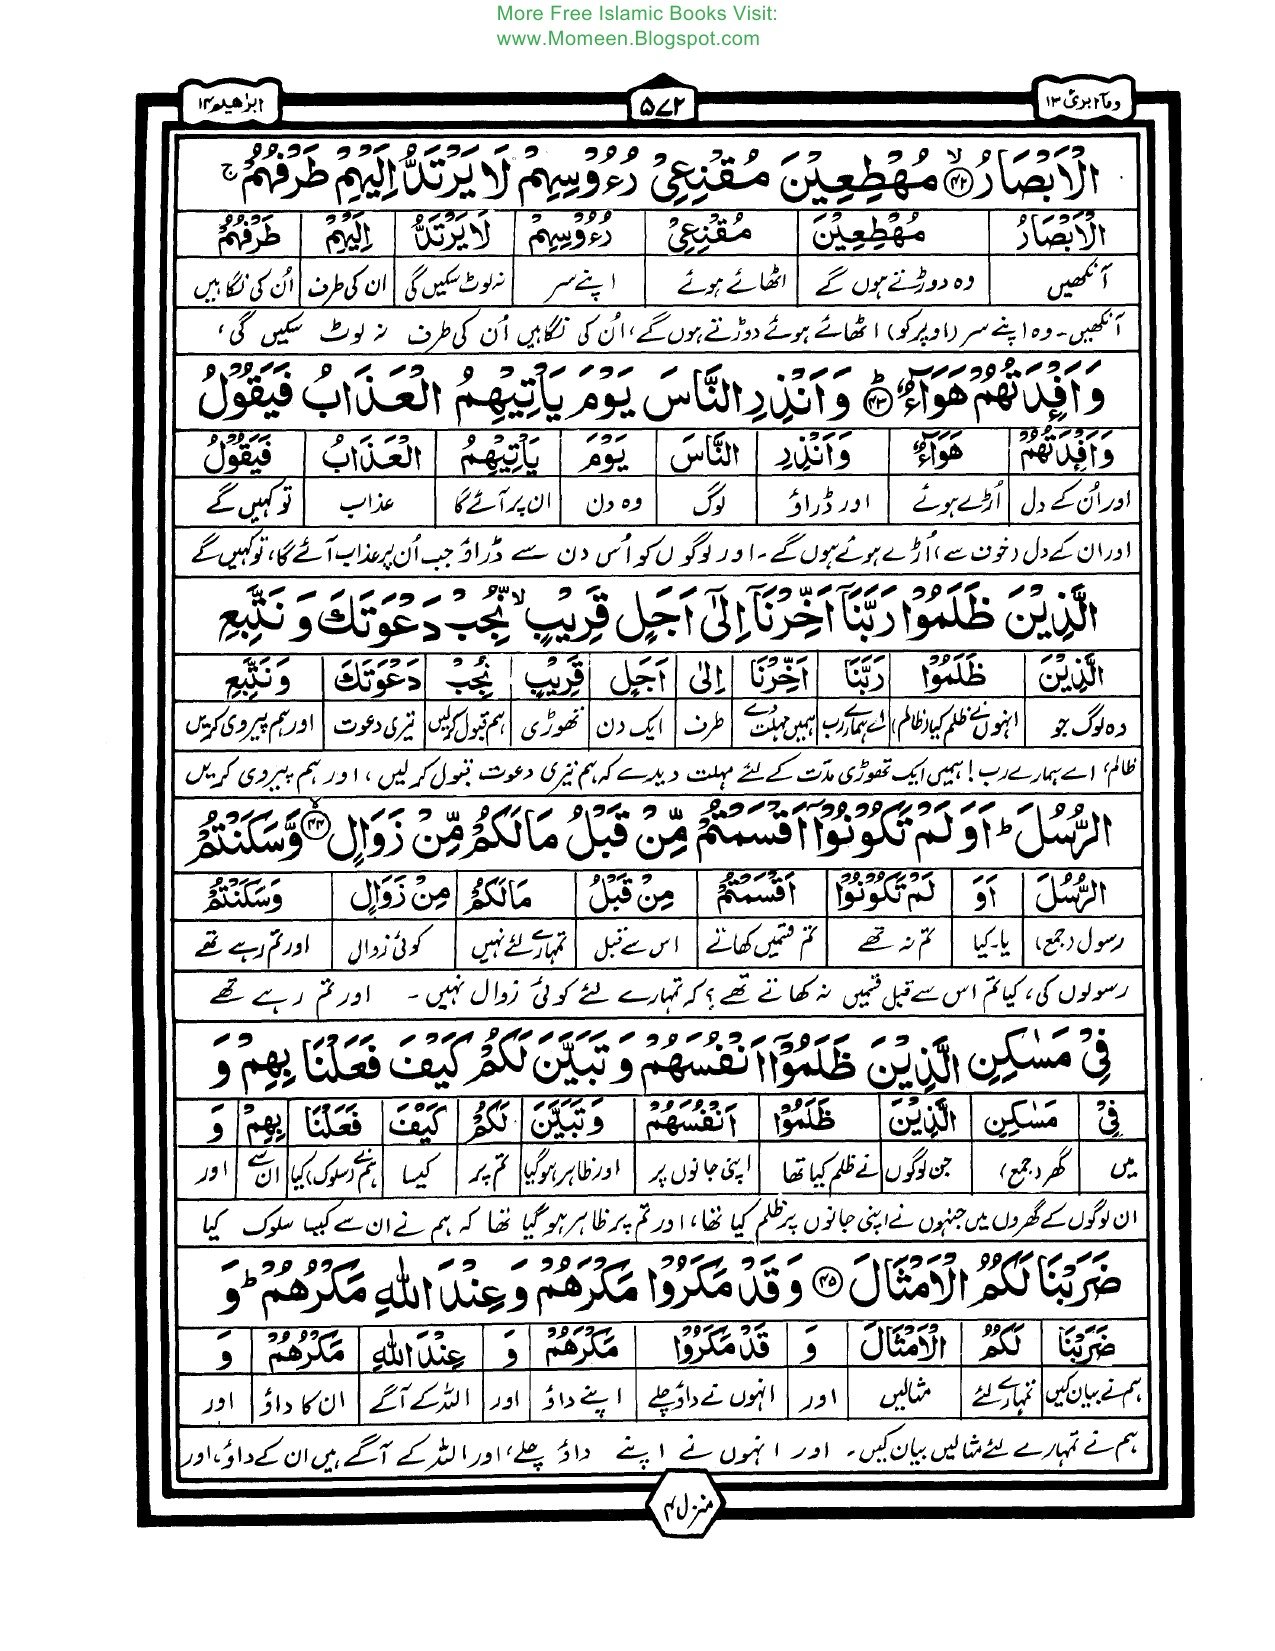 More Free Islamic Books Visit:
www.Momeen.Blogspot.com
وما ابرئ ۱۳
۵۷۲
ابرٰهيم ۱۴
الْاَبْصَارُ ﴿۴۲﴾ مُهْطِعِيْنَ مُقْنِعِيْ رُءُوْسِهِمْ لَا يَرْتَدُّ اِلَيْهِمْ طَرْفُهُمْ ج
الْاَبْصَارُ مُهْطِعِيْنَ مُقْنِعِيْ رُءُوْسِهِمْ لَا يَرْتَدُّ اِلَيْهِمْ طَرْفُهُمْ
آنکھیں وہ دوڑتے ہوں گے اٹھائے ہوئے اپنے سر نہ لوٹ سکیں گی ان کی طرف اُن کی نگاہیں
آنکھیں۔ وہ اپنے سر (اوپر کو) اٹھائے ہوئے دوڑتے ہوں گے، اُن کی نگاہیں اُن کی طرف نہ لوٹ سکیں گی،
وَاَفْـِٕدَتُهُمْ هَوَآءٌ ﴿۴۳﴾ وَاَنْذِرِ النَّاسَ يَوْمَ يَاْتِيْهِمُ الْعَذَابُ فَيَقُوْلُ
وَاَفْـِٕدَتُهُمْ هَوَآءٌ وَاَنْذِرِ النَّاسَ يَوْمَ يَاْتِيْهِمُ الْعَذَابُ فَيَقُوْلُ
اور اُن کے دل اُڑے ہوئے اور ڈراؤ لوگ وہ دن ان پر آئے گا عذاب تو کہیں گے
اور ان کے دل (خوف سے) اُڑے ہوئے ہوں گے۔ اور لوگوں کو اُس دن سے ڈراؤ جب اُن پر عذاب آئے گا، تو کہیں گے
الَّذِيْنَ ظَلَمُوْا رَبَّنَآ اَخِّرْنَآ اِلٰٓى اَجَلٍ قَرِيْبٍ ۙ نُّجِبْ دَعْوَتَكَ وَنَتَّبِعِ
الَّذِيْنَ ظَلَمُوْا رَبَّنَا اَخِّرْنَا اِلٰى اَجَلٍ قَرِيْبٍ نُجِبْ دَعْوَتَكَ وَنَتَّبِعِ
وہ لوگ جو انہوں نے ظلم کیا (ظالم) اے ہمارے رب ہمیں مہلت دے طرف ایک دن تھوڑی ہم قبول کرلیں تیری دعوت اور ہم پیروی کریں
ظالم، اے ہمارے رب! ہمیں ایک تھوڑی مدّت کے لئے مہلت دیدے کہ ہم تیری دعوت قبول کر لیں، اور ہم پیروی کریں
الرُّسُلَ ؕ اَوَلَمْ تَكُوْنُوْٓا اَقْسَمْتُمْ مِّنْ قَبْلُ مَا لَكُمْ مِّنْ زَوَالٍ ﴿۴۴﴾ وَّسَكَنْتُمْ
الرُّسُلَ اَوَ لَمْ تَكُوْنُوْا اَقْسَمْتُمْ مِنْ قَبْلُ مَالَكُمْ مِنْ زَوَالٍ وَسَكَنْتُمْ
رسول (جمع) یا۔کیا تم نہ تھے تم قسمیں کھاتے اس سے قبل تمہارے لئے نہیں کوئی زوال اور تم رہے تھے
رسولوں کی، کیا تم اس سے قبل قسمیں نہ کھاتے تھے؟ کہ تمہارے لئے کوئی زوال نہیں۔ اور تم رہے تھے
فِيْ مَسٰكِنِ الَّذِيْنَ ظَلَمُوْٓا اَنْفُسَهُمْ وَتَبَيَّنَ لَكُمْ كَيْفَ فَعَلْنَا بِهِمْ وَ
فِيْ مَسٰكِنِ الَّذِيْنَ ظَلَمُوْا اَنْفُسَهُمْ وَتَبَيَّنَ لَكُمْ كَيْفَ فَعَلْنَا بِهِمْ وَ
میں گھر (جمع) جن لوگوں نے ظلم کیا تھا اپنی جانوں پر اور ظاہر ہوگیا تم پر کیسا ہم نے (سلوک) کیا ان سے اور
ان لوگوں کے گھروں میں جنہوں نے اپنی جانوں پر ظلم کیا تھا، اور تم پر ظاہر ہو گیا تھا کہ ہم نے ان سے کیسا سلوک کیا
ضَرَبْنَا لَكُمُ الْاَمْثَالَ ﴿۴۵﴾ وَقَدْ مَكَرُوْا مَكْرَهُمْ وَعِنْدَ اللّٰهِ مَكْرُهُمْ ؕ وَ
ضَرَبْنَا لَكُمُ الْاَمْثَالَ وَ قَدْ مَكَرُوْا مَكْرَهُمْ وَ عِنْدَ اللّٰهِ مَكْرُهُمْ وَ
ہم نے بیان کیں تمہارے لئے مثالیں اور انہوں نے داؤ چلے اپنے داؤ اور اللہ کے آگے ان کا داؤ اور
ہم نے تمہارے لئے مثالیں بیان کیں۔ اور انہوں نے اپنے داؤ چلے، اور اللہ کے آگے ہیں ان کے داؤ، اور
منزل ۳